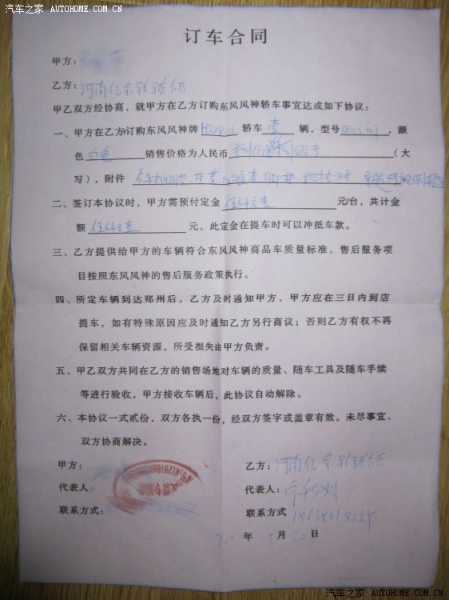 汽车之家 AUTOHOME.COM.CN
订车合同
甲方：
乙方：河南亿
甲乙双方经协商，就甲方在乙方订购东风风神轿车事宜达成如下协议：
一、甲方在乙方订购东风风神牌 轿车 壹 辆，型号 ，颜
色 白色 销售价格为人民币 （大
写），附件
二、签订本协议时，甲方需预付定金 元/台，共计金
额 元，此定金在提车时可以冲抵车款。
三、乙方提供给甲方的车辆符合东风风神商品车质量标准，售后服务项
目按照东风风神的售后服务政策执行。
四、所定车辆到达郑州后，乙方及时通知甲方，甲方应在三日内到店
提车，如有特殊原因应及时通知乙方另行商议；否则乙方有权不再
保留相关车辆资源，所受损失由甲方负责。
五、甲乙双方共同在乙方的销售场地对车辆的质量、随车工具及随车手续
等进行验收，甲方接收车辆后，此协议自动解除。
六、本协议一式贰份，双方各执一份，经双方签字或盖章有效。未尽事宜、
双方协商解决。
甲方： 乙方：河南亿
代表人： 代表人：
联系方式： 联系方式
年 月 日
汽车之家 AUTOHOME.COM.CN